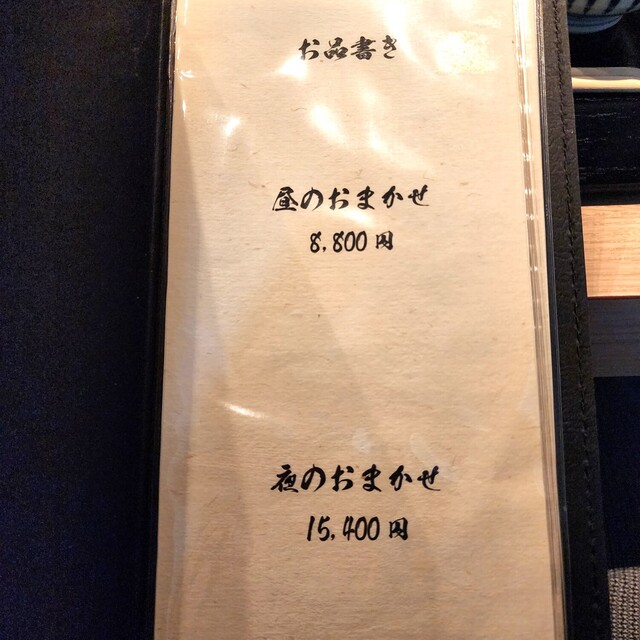 お品書き
昼のおまかせ
8,800円
夜のおまかせ
15,400円